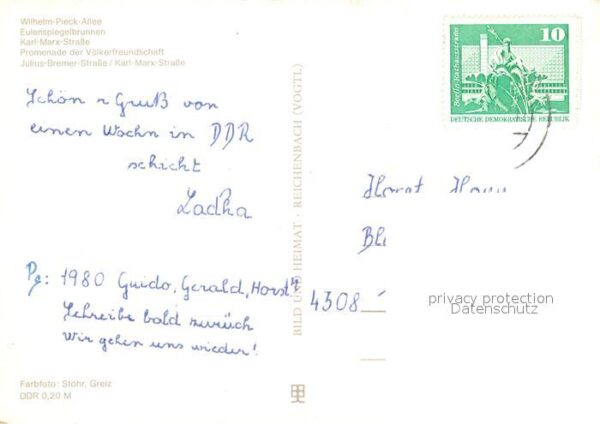 Wilhelm-Pieck-Allee
Eulenspiegelbrunnen
Karl-Marx-Straße
Promenade der Völkerfreundschaft
Julius-Bremer-Straße / Karl-Marx-Straße
Schön r Gruß von
einen Wochn in DDR
schickt
Ladka
Pg: 1980 Guido, Gerald, Horst
Schreibe bald zurück
Wir gehen uns wieder!
Farbfoto: Stöhr, Greiz
DDR 0,20 M
BILD UND HEIMAT · REICHENBACH (VOGTL)
Berlin-Rathausstraße
10
DEUTSCHE DEMOKRATISCHE REPUBLIK
Horst
4308
privacy protection
Datenschutz